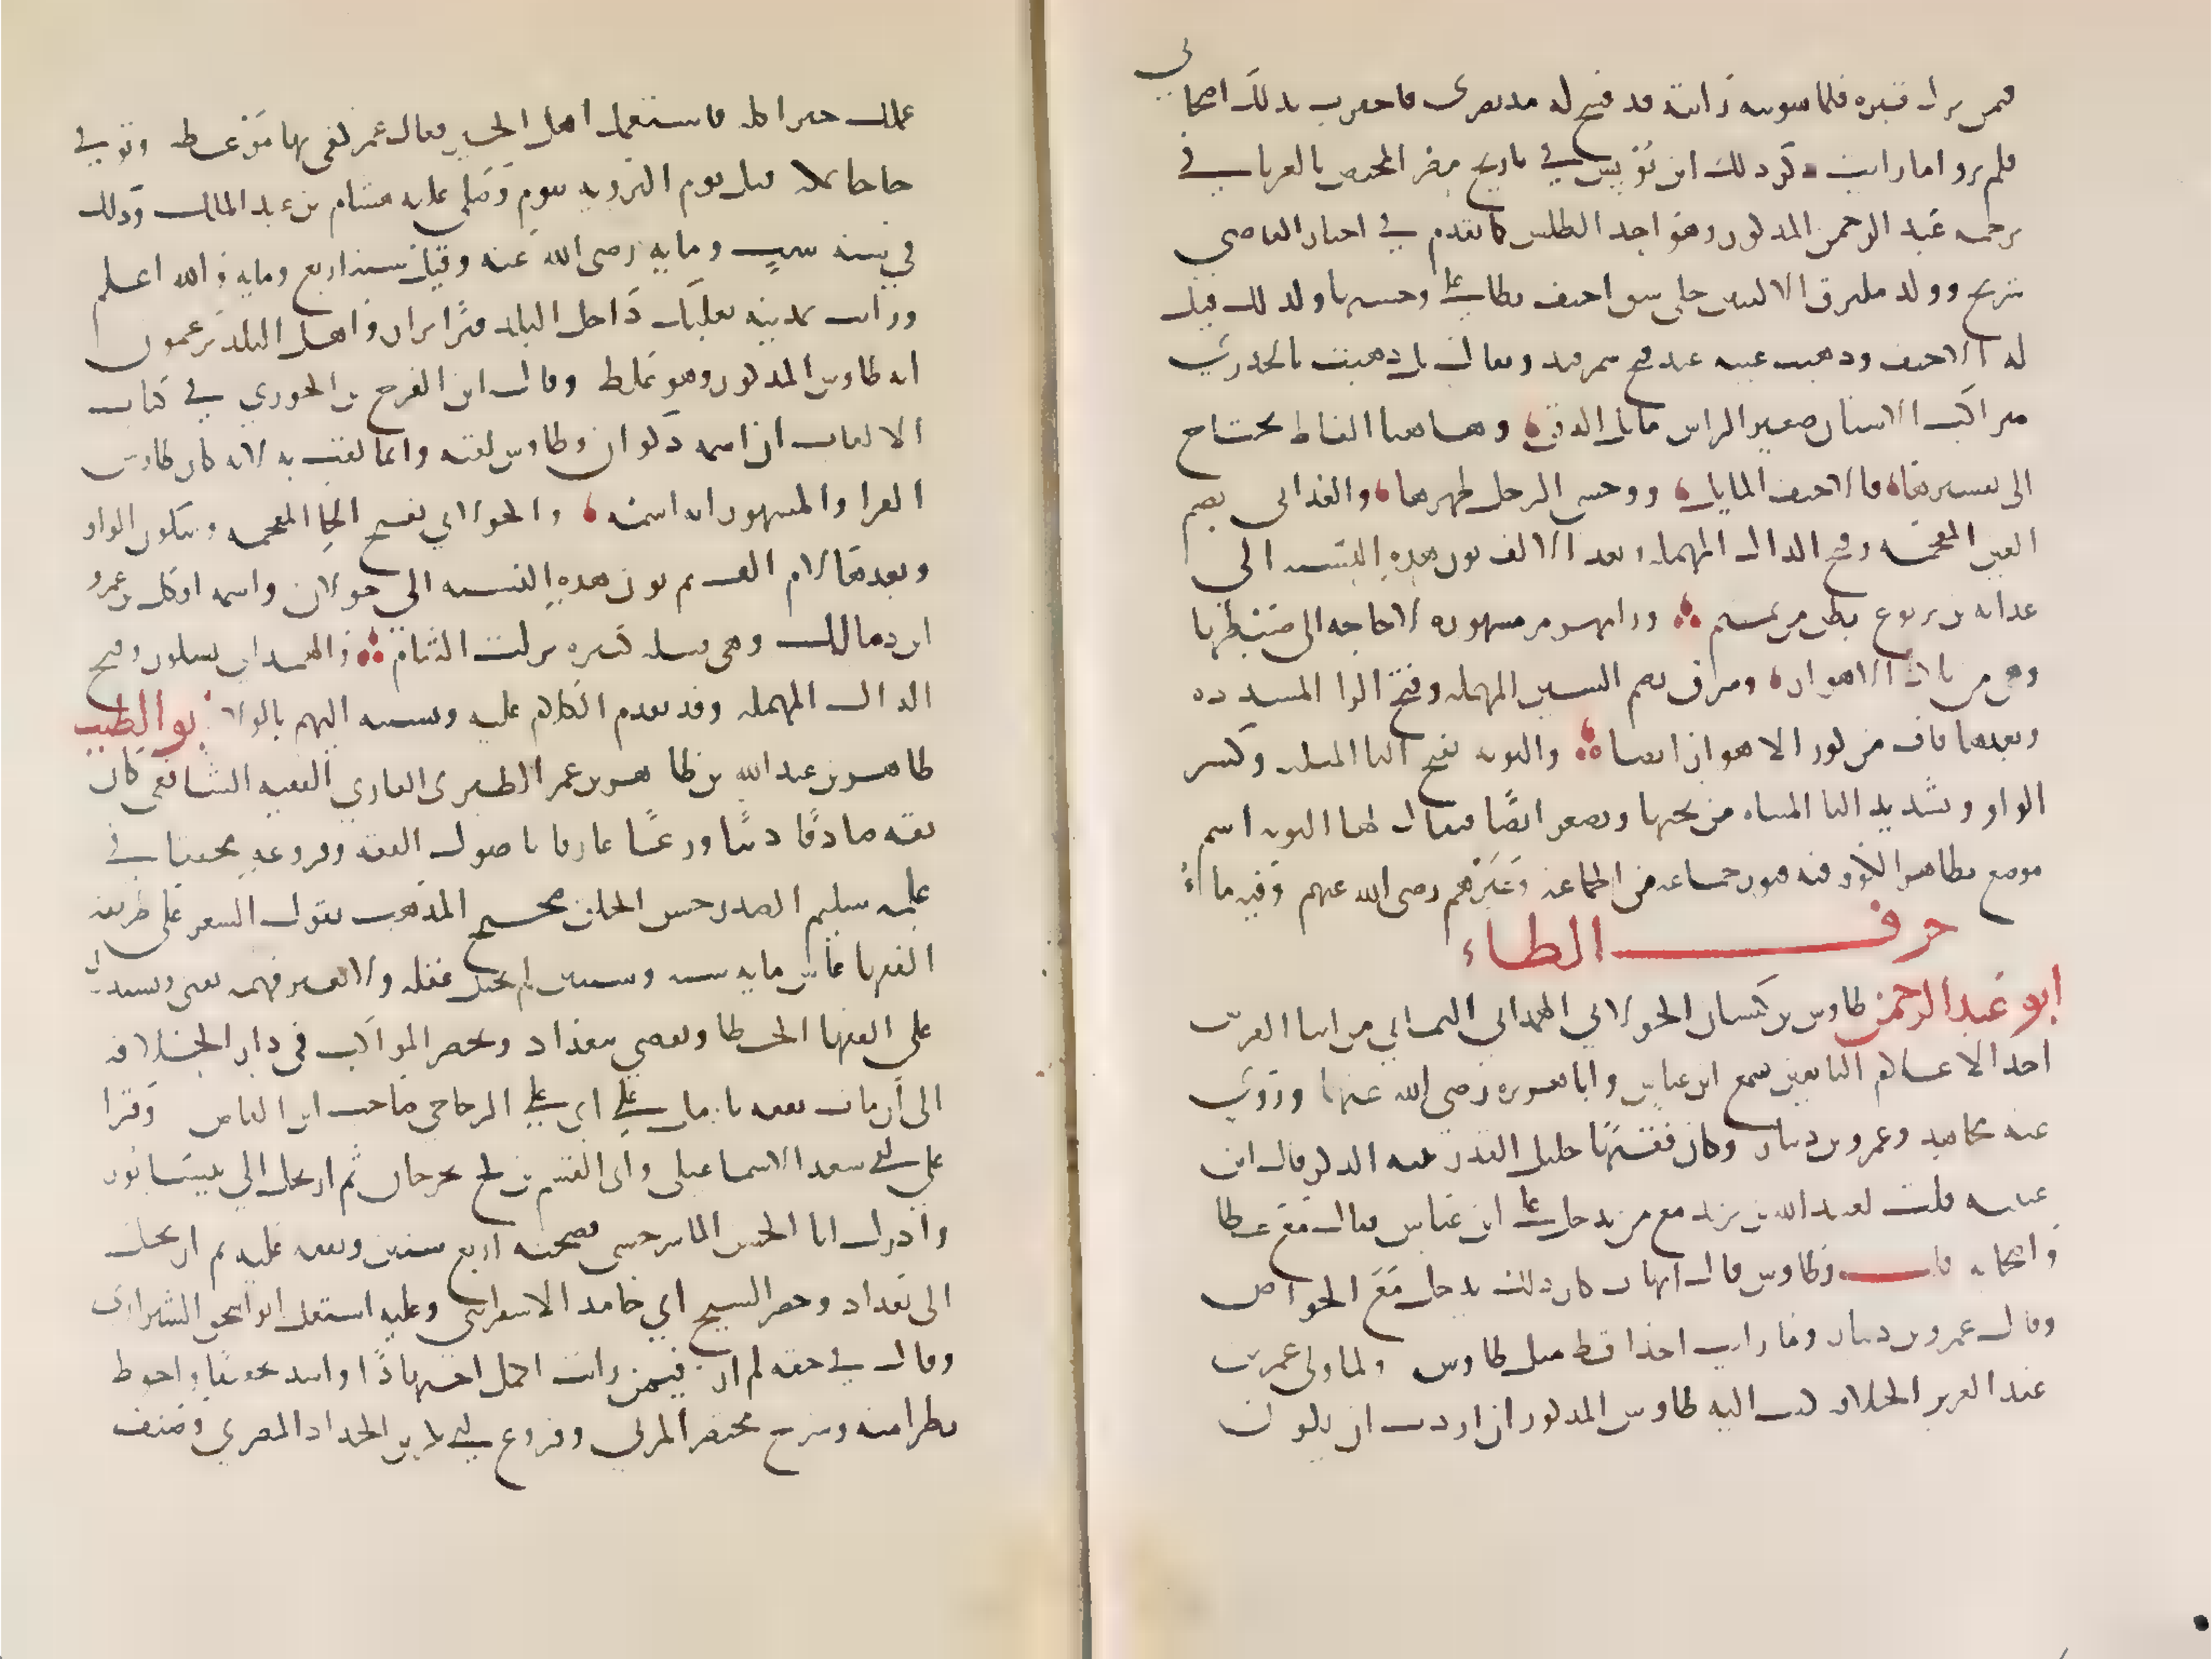 فيمن نزل قبره فلما سويته رايته قد فسح له مد بصرى فاخبرت بذلك اصحابي
فلم يروا ما رايت ذكر ذلك ابن يونس في تاريخ مصر المختص بالغرباء في
ترجمة عبد الرحمن المذكور وهو احد الطلس كما تقدم في اخبار القاضي
شريح وولد ملتزق الاليتين حتى شق احنف يطا على وحشيها ولذلك قيل
له الاحنف وذهبت عينه عند فتح سمرقند ويقال بل ذهبت بالجدري
متراكب الاسنان صغير الراس مايل الذقن وهاهنا الفاظ تحتاج
الى تفسيرها فالاحنف المايل ووحشي الرجل ظهرها والغداني بضم
الغين المعجمه وفتح الدال المهمله وبعد الالف نون هذه النسبه الى
غدانه بن يربوع بطن من تميم ورامهرمز مشهوره لا حاجه الى ضبطها
وهي من بلاد الاهواز وسرق بضم السين المهمله وفتح الرا المشدده
وبعدها قاف من كور الاهواز ايضا والثويه بفتح الثا المثلثه وكسر
الواو وتشديد اليا المثناه من تحتها وتصغر ايضا فيقال لها الثويه اسم
موضع بظاهر الكوفه فيه قبور جماعه من الصحابه وغيرهم رضي الله عنهم وفيه ماء
حرف الطاء
ابو عبد الرحمن طاوس بن كيسان الخولاني الهمداني اليماني من ابنا الفرس
احد الاعلام التابعين سمع ابن عباس وابا هريره رضي الله عنهما وروى
عنه مجاهد وعمرو بن دينار وكان فقيها جليل القدر نبيه الذكر قال ابن
عيينه قلت لعبيد الله بن يزيد مع من تدخل على ابن عباس قال مع عطا
واصحابه قلت وطاوس قال ايهات كان ذلك يدخل مع الخواص
وقال عمرو بن دينار وما رايت احدا قط مثل طاوس ولما ولي عمر بن
عبد العزيز الخلافه كتب اليه طاوس المذكور ان اردت ان يكون
عملك خيرا كله فاستعمل اهل الخير فقال عمر كفى بها موعظه وتوفي
حاجا بمكه قبل يوم الترويه بيوم وصلى عليه هشام بن عبد الملك وذلك
في سنه ست ومايه رضي الله عنه وقيل سنه اربع ومايه والله اعلم
ورايت بمدينه بعلبك داخل البلد قبرا يزار واهل البلد يزعمون
انه طاوس المذكور وهو غلط وقال ابو الفرج بن الجوزي في كتاب
الالقاب ان اسمه ذكوان وطاوس لقبه وانما لقب به لانه كان طاوس
القرا والمشهور انه اسمه والخولاني بفتح الخا المعجمه وسكون الواو
وبعدها لام الف ثم نون هذه النسبه الى خولان واسمه افكل بن عمرو
ابن مالك وهي قبيله كبيره نزلت الشام والهمداني بسكون وفتح
الدال المهمله وقد تقدم الكلام عليه ونسبته اليهم بالولا ابو الطيب
طاهر بن عبد الله بن طاهر بن عمر الطبري القاضي الفقيه الشافعي كان
ثقه صادقا دينا ورعا عارفا باصول الفقه وفروعه محققا في
علمه سليم الصدر حسن الخلق صحيح المذهب يقول الشعر على طريقه
الفقها عاش مايه سنه وسنتين لم يختل عقله ولا تغير فهمه يفتي ويستدرك
على الفقها الخطا ويقضي ببغداد ويحضر المواكب في دار الخلافه
الى ان مات تفقه بامل على ابي على الزجاجي صاحب ابن القاص وقرا
على ابي سعد الاسماعيلي وابي القسم بن كج بجرجان ثم ارتحل الى نيسابور
وادرك ابا الحسن الماسرجسي فصحبه اربع سنين وتفقه عليه ثم ارتحل
الى بغداد وحضر الشيخ ابي حامد الاسفرايني وعليه اشتغل ابو اسحق الشيرازي
وقال في حقه لم ار فيمن رايت اكمل اجتهادا واشد تحقيقا واجود
نظرا منه وشرح مختصر المزني وفروع ابي بكر بن الحداد المصري وصنف